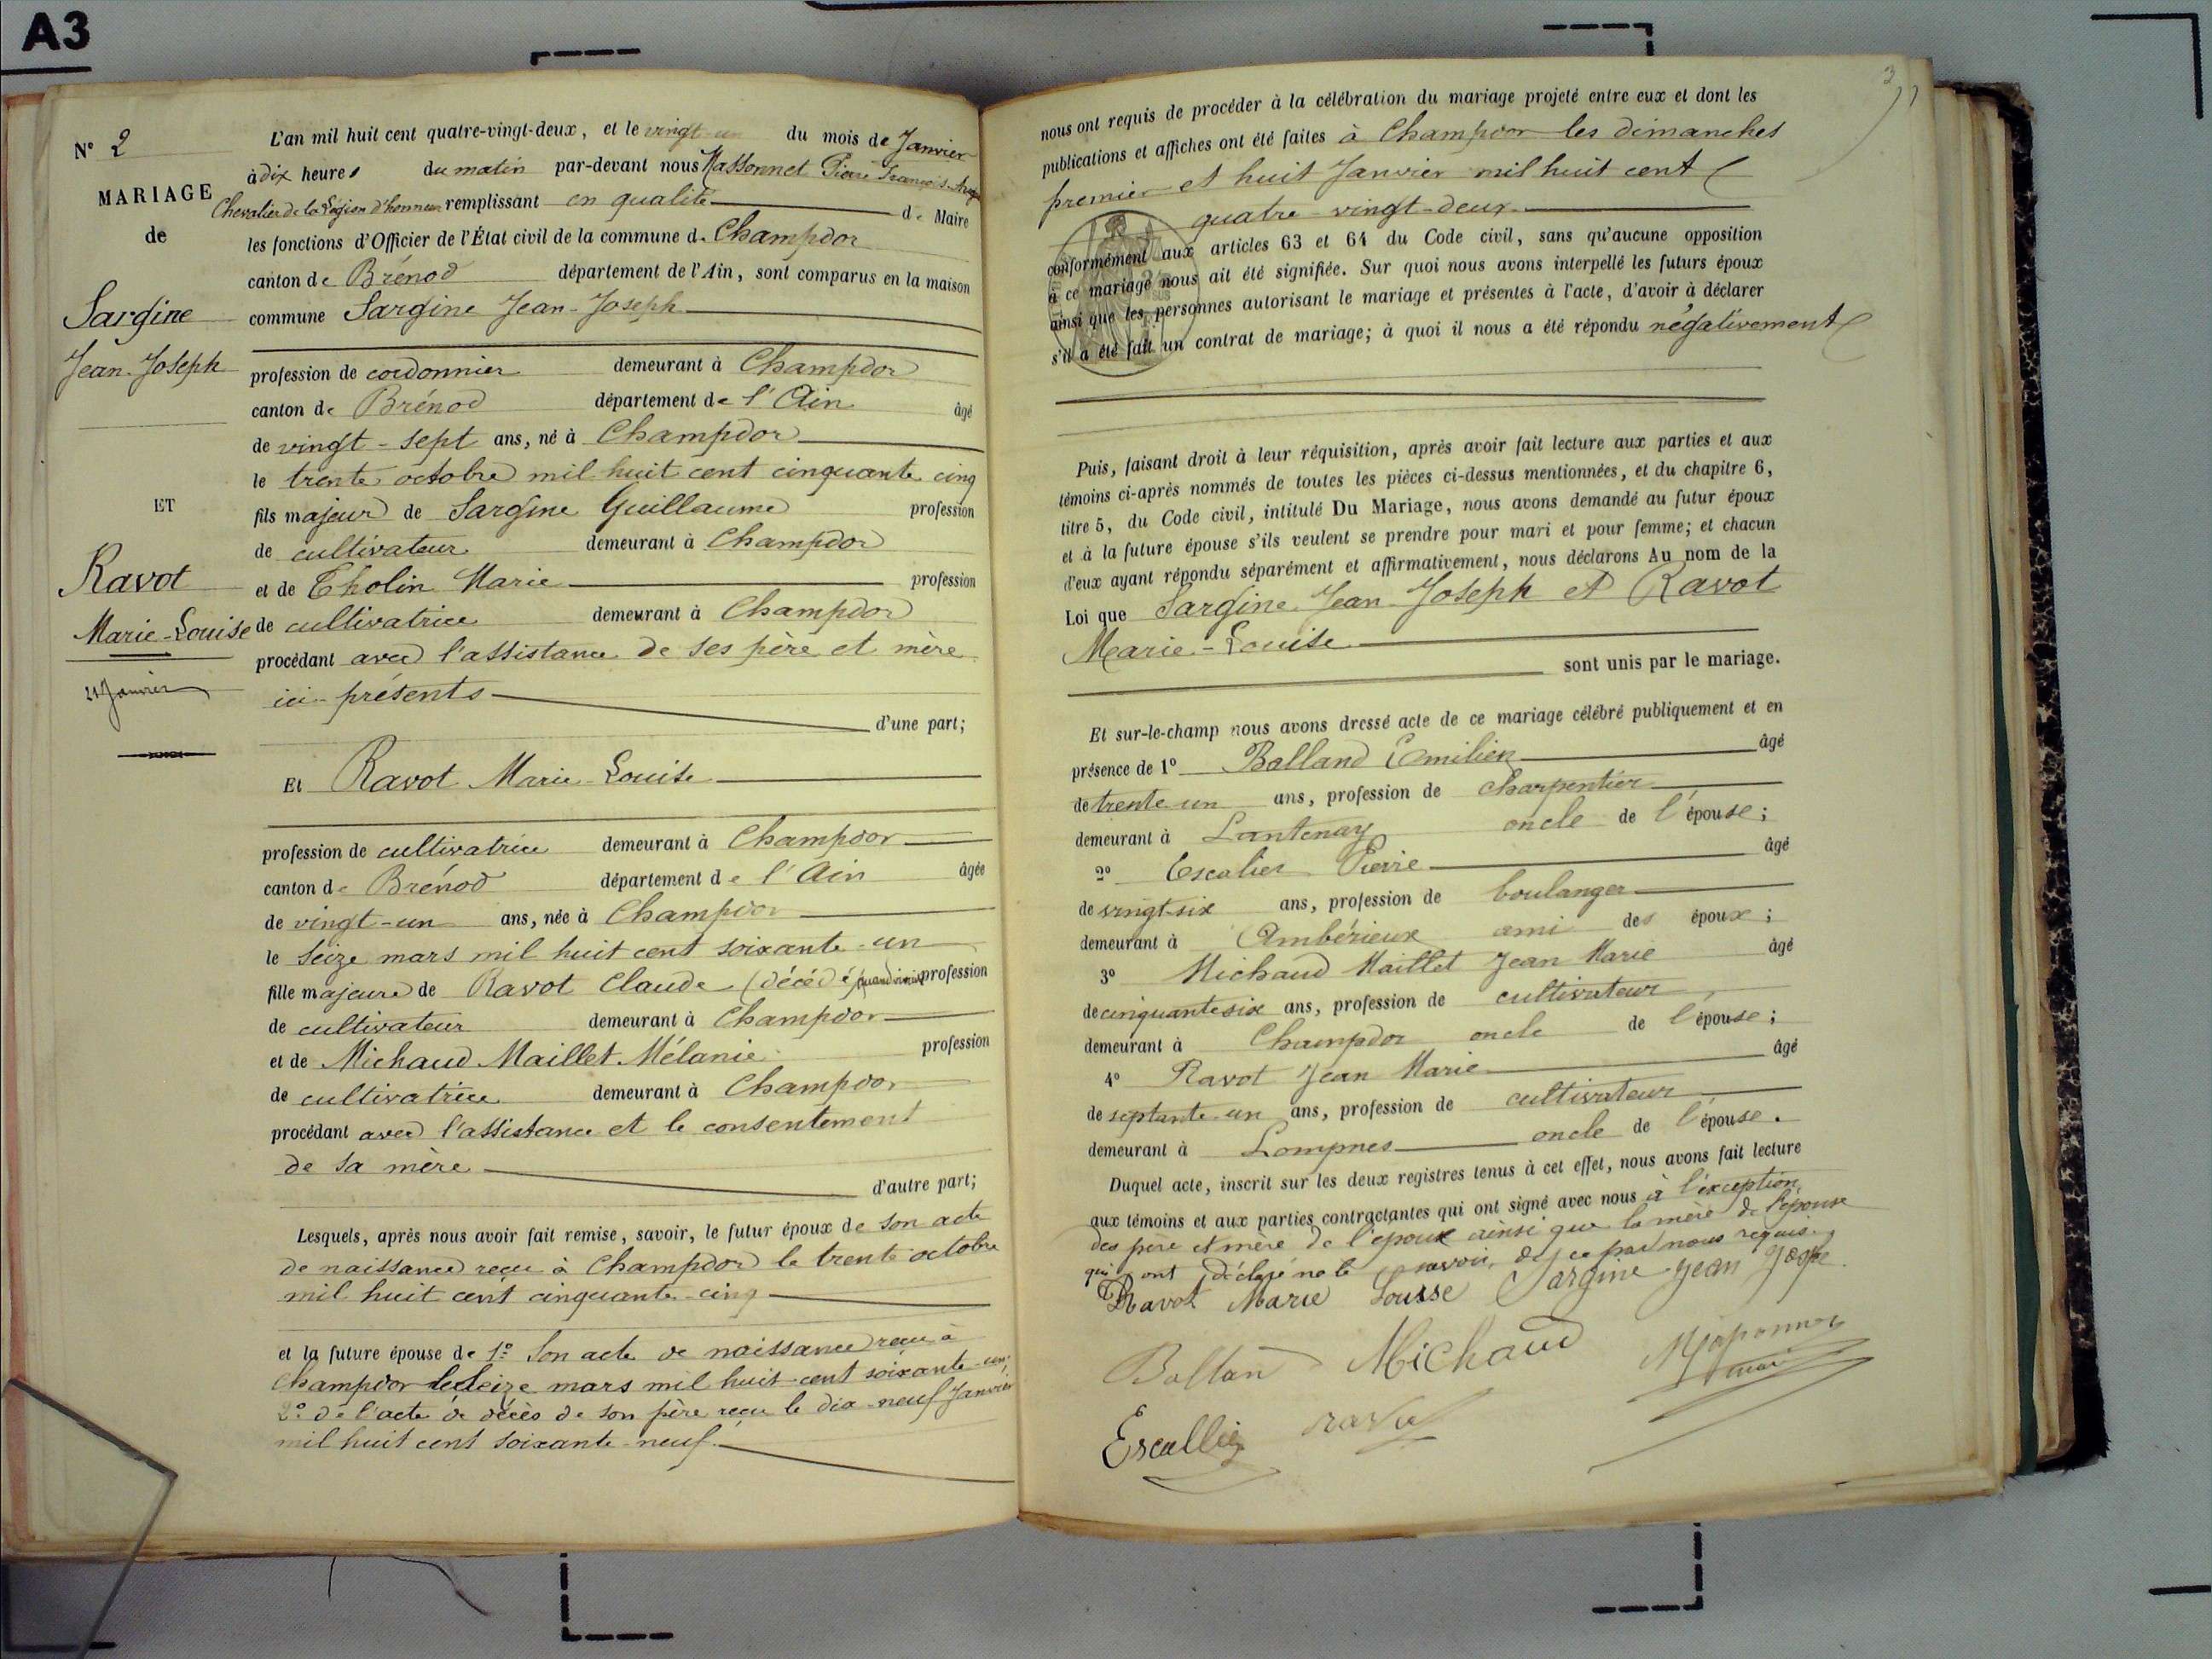 A3
N° 2
MARIAGE
de
Sargine
Jean-Joseph
ET
Ravot
Marie-Louise
21 Janvier
L'an mil huit cent quatre-vingt-deux, et le vingt-un du mois de Janvier
à dix heures du matin par-devant nous Massonnet Pierre François
Chevalier de la Légion d'honneur remplissant en qualité de Maire
les fonctions d'Officier de l'État civil de la commune de Champdor
canton de Brénod département de l'Ain, sont comparus en la maison
commune Sargine Jean-Joseph
profession de cordonnier demeurant à Champdor
canton de Brénod département de l'Ain âgé
de vingt-sept ans, né à Champdor
le trente octobre mil huit cent cinquante cinq
fils majeur de Sargine Guillaume profession
de cultivateur demeurant à Champdor
et de Tholin Marie profession
de cultivatrice demeurant à Champdor
procédant avec l'assistance de ses père et mère
ici présents
d'une part;
Et Ravot Marie Louise
profession de cultivatrice demeurant à Champdor
canton de Brénod département de l'Ain âgée
de vingt-un ans, née à Champdor
le seize mars mil huit cent soixante-un
fille majeure de Ravot Claude (décédé) quand vivait profession
de cultivateur demeurant à Champdor
et de Michaud Maillet Mélanie profession
de cultivatrice demeurant à Champdor
procédant avec l'assistance et le consentement
de sa mère
d'autre part;
Lesquels, après nous avoir fait remise, savoir, le futur époux de son acte
de naissance reçu à Champdor le trente octobre
mil huit cent cinquante-cinq
et la future épouse de 1° Son acte de naissance reçu à
Champdor le seize mars mil huit cent soixante-un;
2° de l'acte de décès de son père reçu le dix-neuf Janvier
mil huit cent soixante-neuf.
3
nous ont requis de procéder à la célébration du mariage projeté entre eux et dont les
publications et affiches ont été faites à Champdor les dimanches
premier et huit Janvier mil huit cent
quatre-vingt-deux
conformément aux articles 63 et 64 du Code civil, sans qu'aucune opposition
à ce mariage nous ait été signifiée. Sur quoi nous avons interpellé les futurs époux
ainsi que les personnes autorisant le mariage et présentes à l'acte, d'avoir à déclarer
s'il a été fait un contrat de mariage; à quoi il nous a été répondu négativement
Puis, faisant droit à leur réquisition, après avoir fait lecture aux parties et aux
témoins ci-après nommés de toutes les pièces ci-dessus mentionnées, et du chapitre 6,
titre 5, du Code civil, intitulé Du Mariage, nous avons demandé au futur époux
et à la future épouse s'ils veulent se prendre pour mari et pour femme; et chacun
d'eux ayant répondu séparément et affirmativement, nous déclarons Au nom de la
Loi que Sargine Jean Joseph et Ravot
Marie-Louise
sont unis par le mariage.
Et sur-le-champ nous avons dressé acte de ce mariage célébré publiquement et en
présence de 1° Balland Emilien âgé
de trente un ans, profession de charpentier
demeurant à Lantenay oncle de l'épouse;
2° Escalier Pierre âgé
de vingt-six ans, profession de boulanger
demeurant à Ambérieux ami des époux;
3° Michaud Maillet Jean Marie âgé
de cinquante six ans, profession de cultivateur
demeurant à Champdor oncle de l'épouse;
4° Ravot Jean Marie âgé
de septante-un ans, profession de cultivateur
demeurant à Lompnes oncle de l'épouse.
Duquel acte, inscrit sur les deux registres tenus à cet effet, nous avons fait lecture
aux témoins et aux parties contractantes qui ont signé avec nous à l'exception
des père et mère de l'époux ainsi que la mère de l'épouse
qui ont déclaré ne le savoir, de ce par nous requis.
Ravot Marie Louise Sargine Jean
Ballan Michaud
Escallier